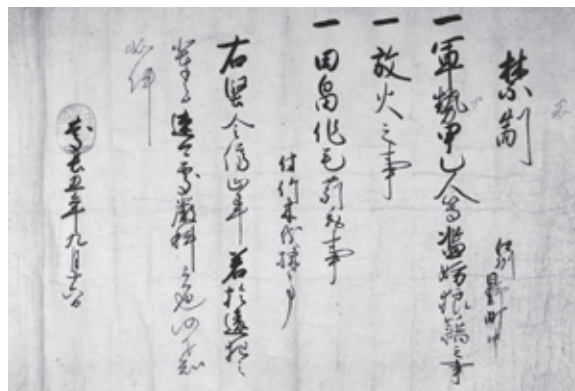 禁制
一軍勢甲乙人等濫妨狼藉之事
一放火之事
一田畠作毛苅取事
付竹木伐採之事
右堅令停止畢若於違犯之
輩者速可処厳科者也仍下知
如件
慶長五年九月十六日